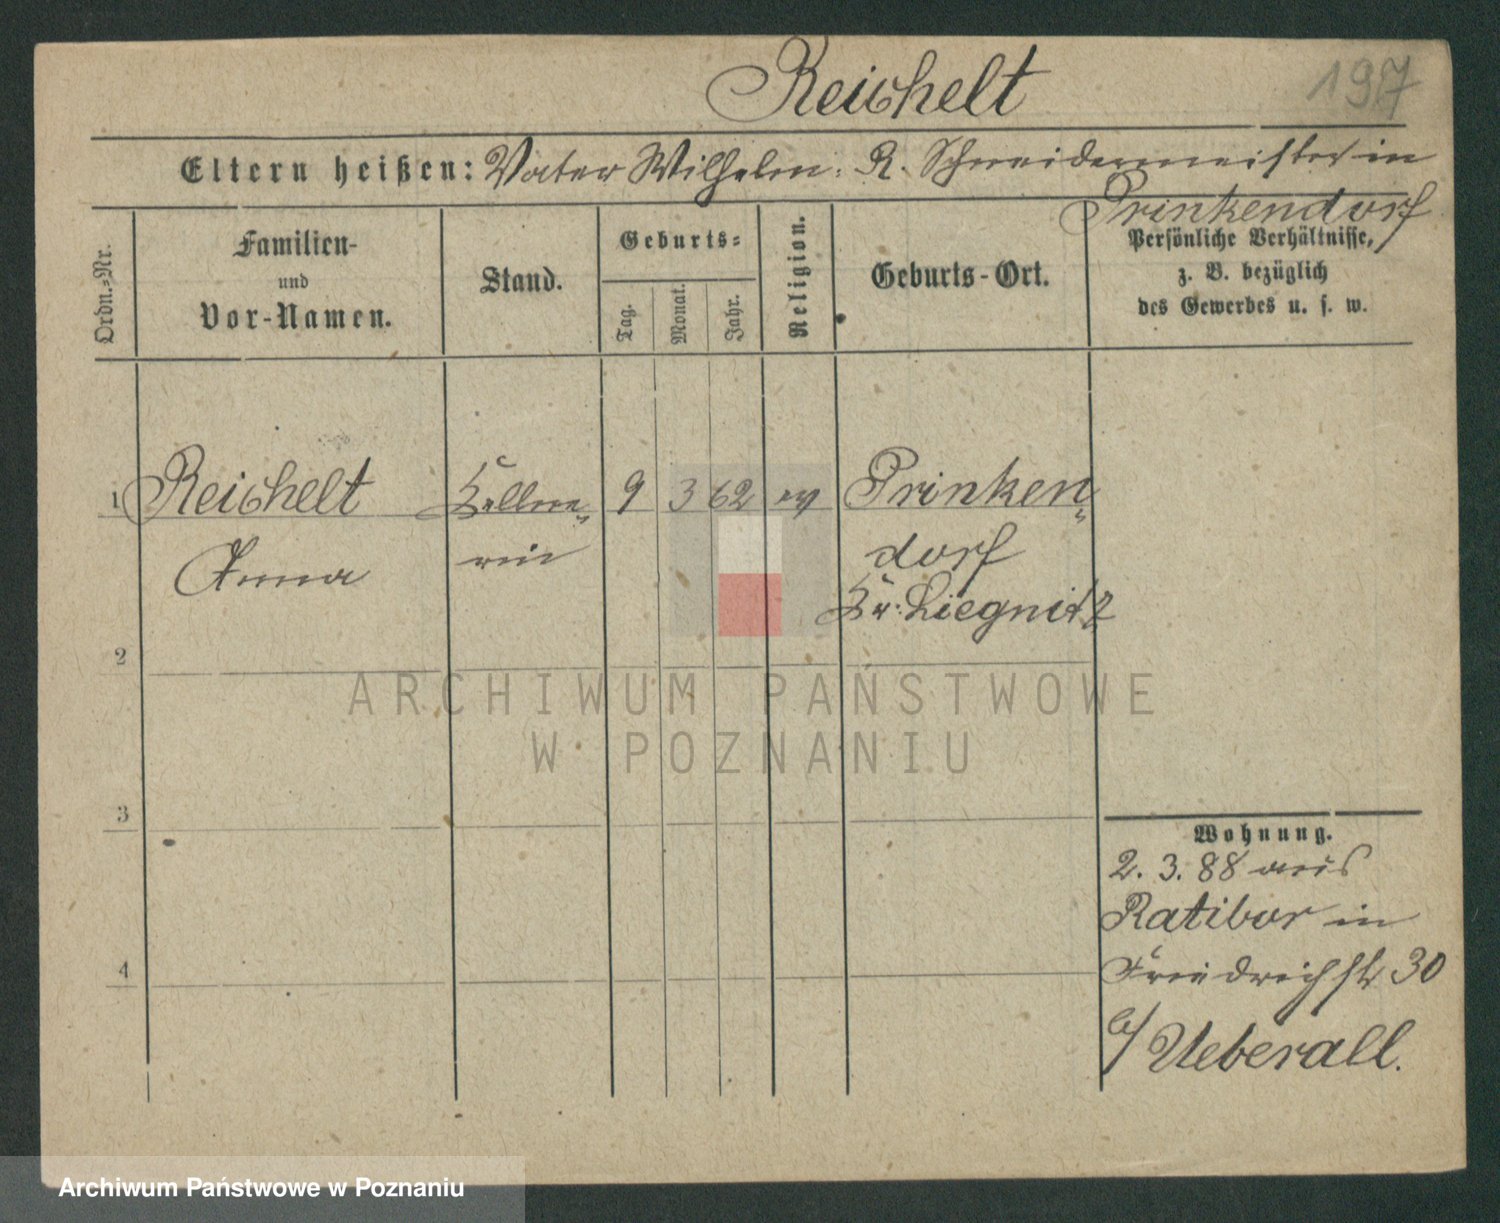 Reichelt
197
Eltern heißen: Vater Wilhelm: R. Schneidermeister in
Prinkendorf
Ordn.-Nr.
Familien-
und
Vor-Namen.
Stand.
Geburts-
Tag.
Monat.
Jahr.
Religion.
Geburts-Ort.
Persönliche Verhältnisse,
z. B. bezüglich
des Gewerbes u. s. w.
1 Reichelt Kellne- 9 3 62 ev Prinken-
Anna rin dorf
Kr: Liegnitz
2
ARCHIWUM PAŃSTWOWE
W POZNANIU
3
Wohnung.
2. 3. 88 aus
Ratibor in
4
Friedrichstr 30
b/ Ueberall.
Archiwum Państwowe w Poznaniu